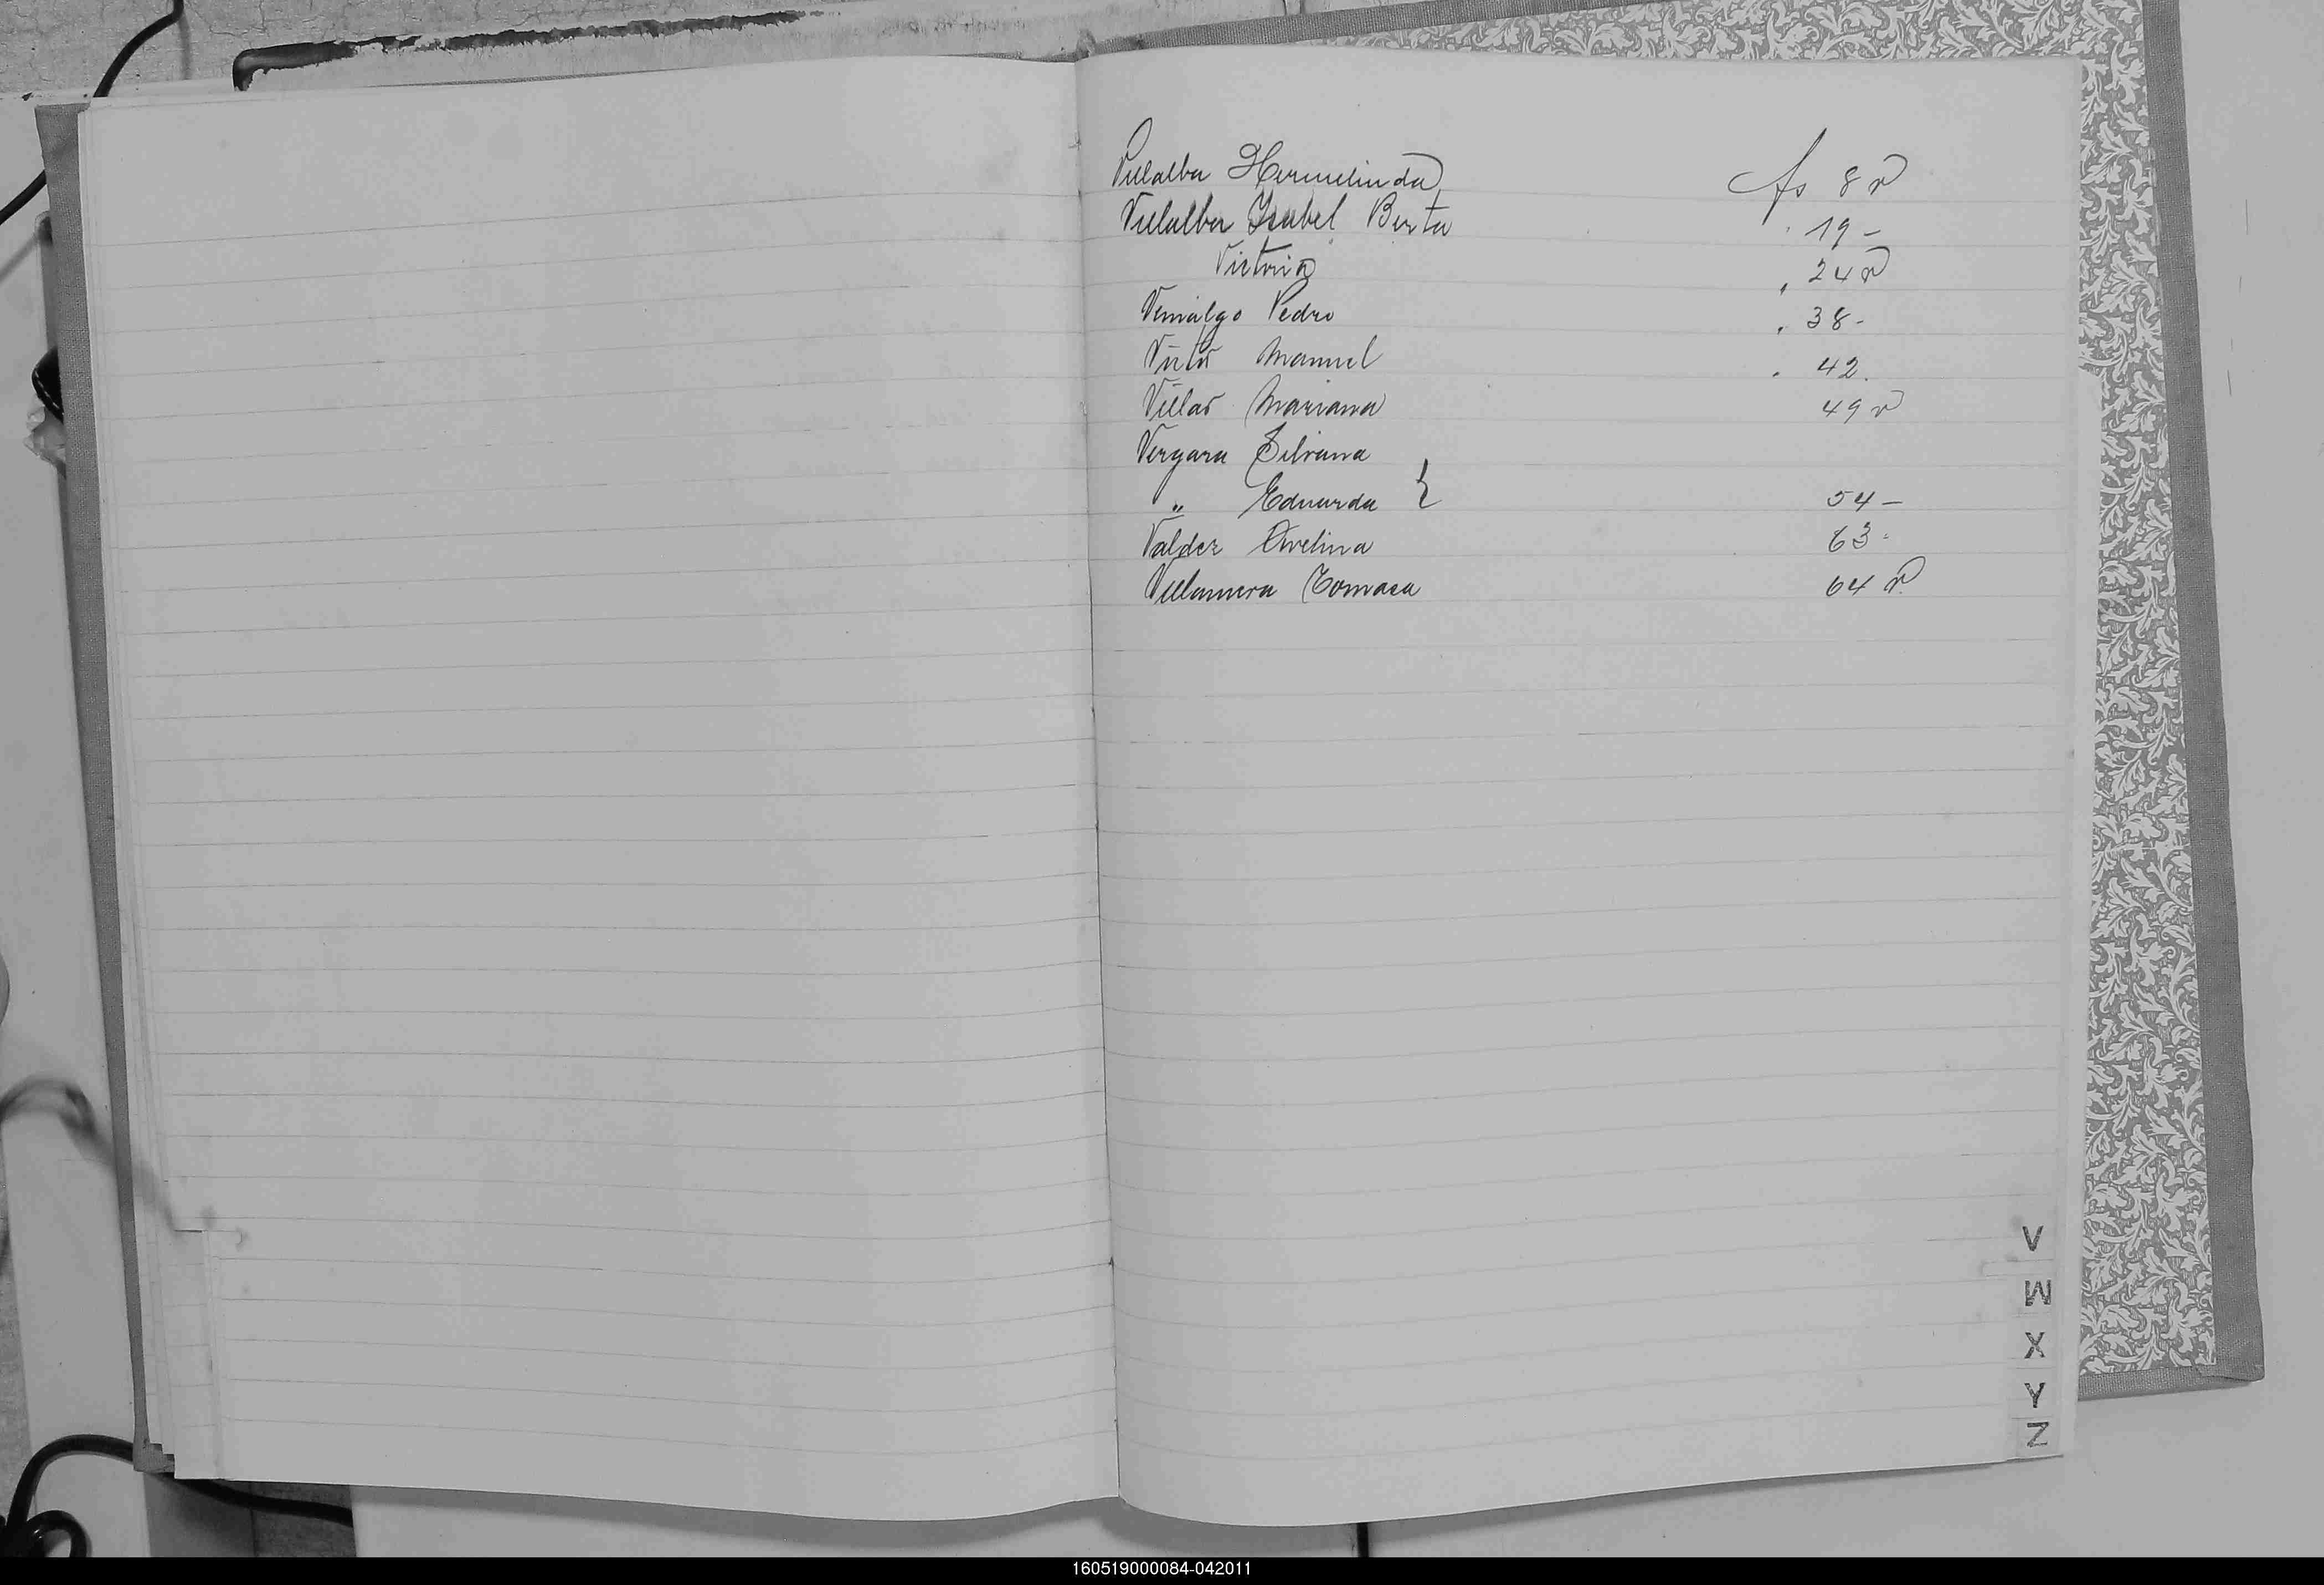 Villalba Hermelinda fs 8 v
Villalba Isabel Berta 19 -
Victoria " 24 v
Vemalgo Pedro " 38 -
Manuel " 42.
Villar Mariana 49 v
Vergara Silvana
" Eduarda } 54 -
Valdez Avelina 63 -
Tomasa 64 v
V
W
X
Y
Z
160519000084-042011